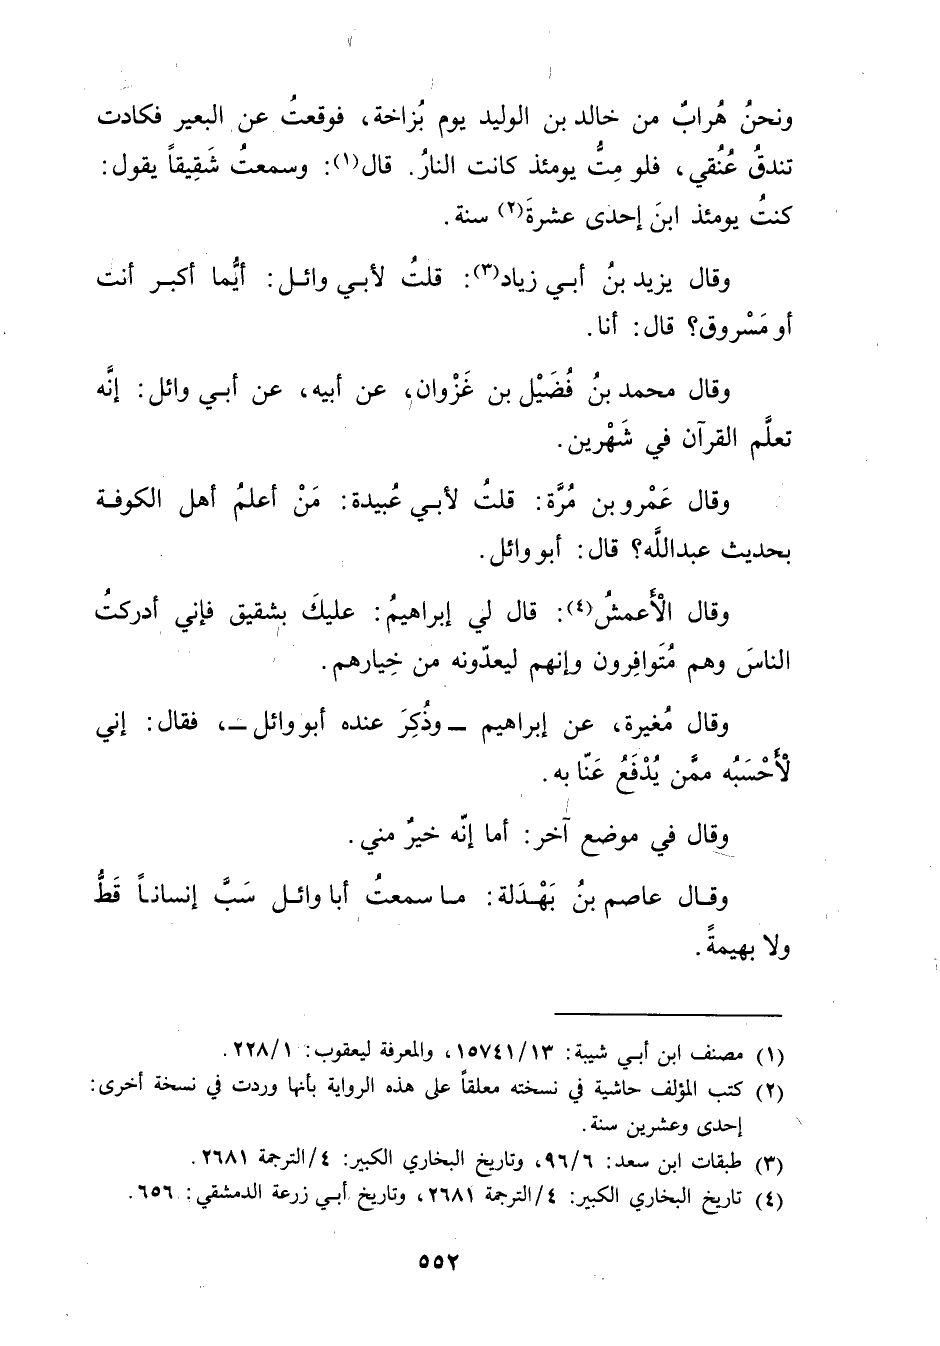 ونحنُ هُرابٌ من خالد بن الوليد يوم بُزاخة، فوقعتُ عن البعير فكادت
تندقُ عُنُقي، فلو مِتُّ يومئذ كانت النارُ. قال(١): وسمعتُ شَقِيقاً يقول:
كنتُ يومئذ ابنَ إحدى عشرةَ(٢) سنة.
وقال يزيد بنُ أبي زياد(٣): قلتُ لأبي وائل: أيُّما أكبر أنت
أو مَسْروق؟ قال: أنا.
وقال محمد بنُ فُضَيْل بن غَزْوان، عن أبيه، عن أبي وائل: إنَّه
تعلَّم القرآن في شَهْرين.
وقال عَمْرو بن مُرَّة: قلتُ لأبي عُبيدة: مَنْ أعلمُ أهل الكوفة
بحديث عبدالله؟ قال: أبو وائل.
وقال الْأَعمشُ(٤): قال لي إبراهيمُ: عليكَ بشقيق فإني أدركتُ
الناسَ وهم مُتَوافِرون وإنهم ليعدّونه من خِيارهم.
وقال مُغيرة، عن إبراهيم ــ وذُكِرَ عنده أبو وائل ــ، فقال: إني
لْأَحْسَبُه ممَّن يُدْفَعُ عَنّا به.
وقال في موضع آخر: أما إنّه خيرٌ مني.
وقال عاصم بنُ بَهْدَلة: ما سمعتُ أبا وائل سَبَّ إنساناً قَطُّ
ولا بهيمةً.
(١) مصنف ابن أبي شيبة: ١٥٧٤١/١٣، والمعرفة ليعقوب: ٢٢٨/١.
(٢) كتب المؤلف حاشية في نسخته معلقاً على هذه الرواية بأنها وردت في نسخة أخرى:
إحدى وعشرين سنة.
(٣) طبقات ابن سعد: ٩٦/٦، وتاريخ البخاري الكبير: ٤/الترجمة ٢٦٨١.
(٤) تاريخ البخاري الكبير: ٤/الترجمة ٢٦٨١، وتاريخ أبي زرعة الدمشقي: ٦٥٦.
٥٥٢